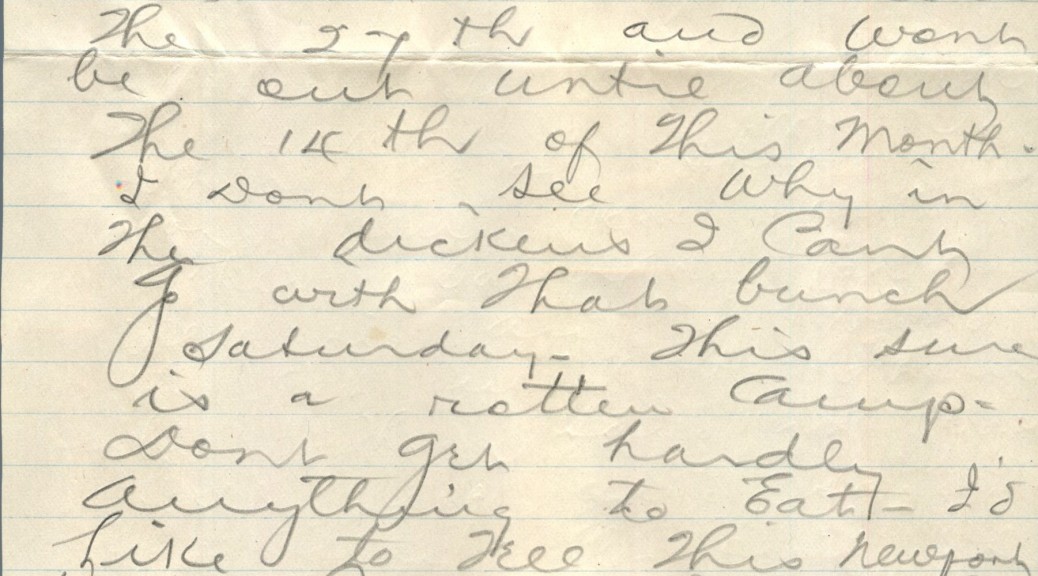 The 27th and wont
be out untie about
The 14th of This Month.
I Dont see Why in
The dickens I Cant
go with That bunch
Saturday- This sure
is a rotten Camp-
Dont get hardly
anything to Eat- I'd
Like to see This Newport